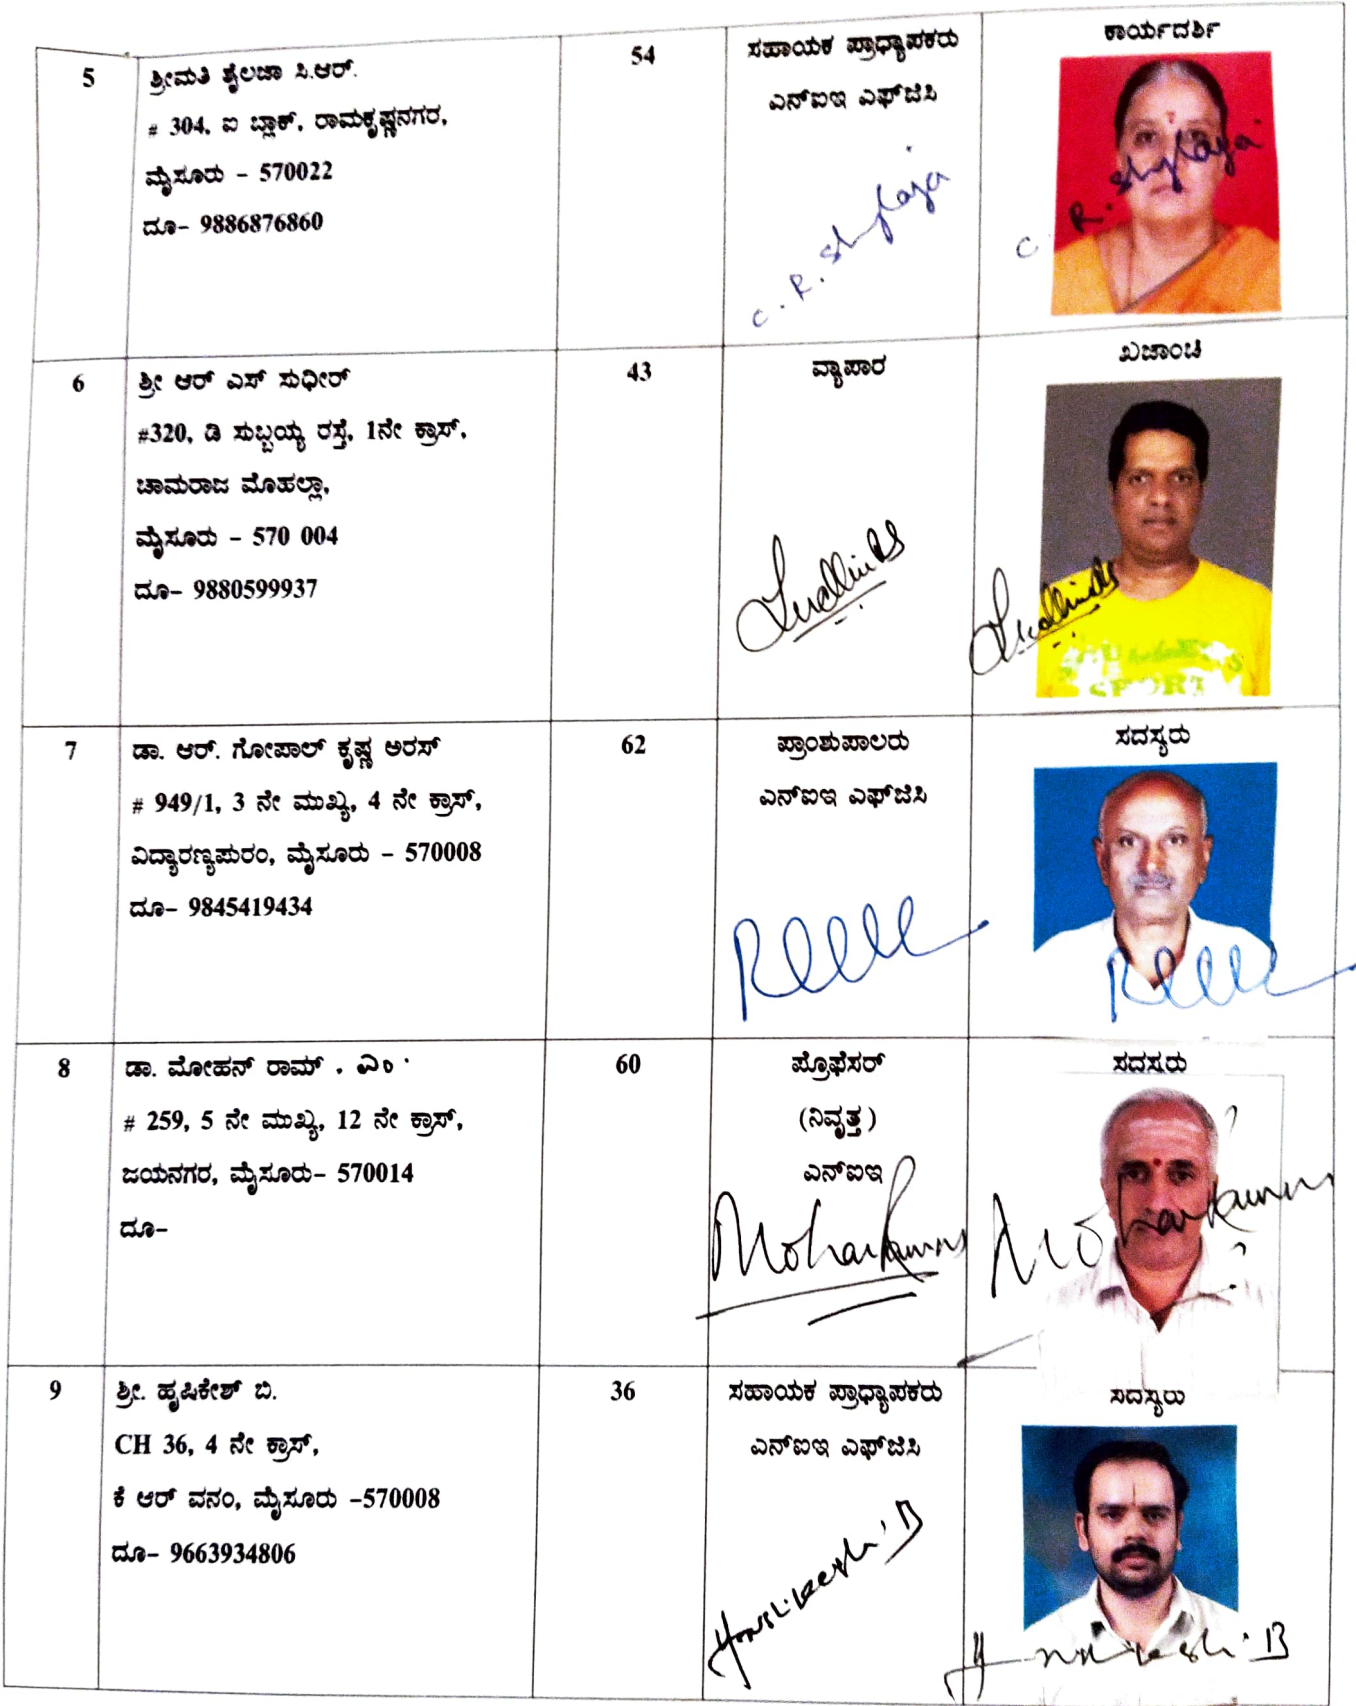 5
ಶ್ರೀಮತಿ ಶೈಲಜಾ ಸಿ.ಆರ್.
# 304, ಐ ಬ್ಲಾಕ್, ರಾಮಕೃಷ್ಣನಗರ,
ಮೈಸೂರು - 570022
ದೂ- 9886876860
54
ಸಹಾಯಕ ಪ್ರಾಧ್ಯಾಪಕರು
ಎನ್‌ಐಇ ಎಫ್‌ಜಿಸಿ
C. R. Shylaja
ಕಾರ್ಯದರ್ಶಿ
C. R. Shylaja
6
ಶ್ರೀ ಆರ್ ಎಸ್ ಸುಧೀರ್
#320, ಡಿ ಸುಬ್ಬಯ್ಯ ರಸ್ತೆ, 1ನೇ ಕ್ರಾಸ್,
ಚಾಮರಾಜ ಮೊಹಲ್ಲಾ,
ಮೈಸೂರು - 570 004
ದೂ- 9880599937
43
ವ್ಯಾಪಾರ
ಖಜಾಂಚಿ
SPORT
7
ಡಾ. ಆರ್. ಗೋಪಾಲ್ ಕೃಷ್ಣ ಅರಸ್
# 949/1, 3 ನೇ ಮುಖ್ಯ, 4 ನೇ ಕ್ರಾಸ್,
ವಿದ್ಯಾರಣ್ಯಪುರಂ, ಮೈಸೂರು - 570008
ದೂ- 9845419434
62
ಪ್ರಾಂಶುಪಾಲರು
ಎನ್‌ಐಇ ಎಫ್‌ಜಿಸಿ
ಸದಸ್ಯರು
8
ಡಾ. ಮೋಹನ್ ರಾಮ್ . ಎಂ .
# 259, 5 ನೇ ಮುಖ್ಯ, 12 ನೇ ಕ್ರಾಸ್,
ಜಯನಗರ, ಮೈಸೂರು- 570014
ದೂ-
60
ಪ್ರೊಫೆಸರ್
(ನಿವೃತ್ತ)
ಎನ್‌ಐಇ
ಸದಸ್ಯರು
9
ಶ್ರೀ. ಹೃಷಿಕೇಶ್ ಬಿ.
CH 36, 4 ನೇ ಕ್ರಾಸ್,
ಕೆ ಆರ್ ವನಂ, ಮೈಸೂರು -570008
ದೂ- 9663934806
36
ಸಹಾಯಕ ಪ್ರಾಧ್ಯಾಪಕರು
ಎನ್‌ಐಇ ಎಫ್‌ಜಿಸಿ
ಸದಸ್ಯರು